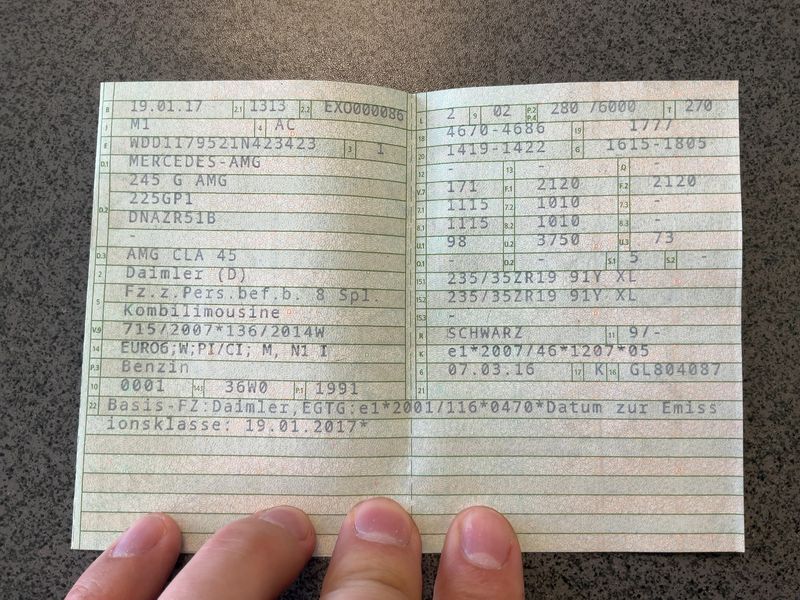 B 19.01.17 2.1 1313 2.2 EXO000086
J M1 4 AC
E WDD1179521N423423 3 1
D.1 MERCEDES-AMG
245 G AMG
D.2 225GP1
DNAZR51B
-
D.3 AMG CLA 45
2 Daimler (D)
5 Fz.z.Pers.bef.b. 8 Spl.
Kombilimousine
V.9 715/2007*136/2014W
14 EURO6;W;PI/CI; M, N1 I
P.3 Benzin
10 0001 14.1 36W0 P.1 1991
22 Basis-FZ:Daimler,EGTG:e1*2001/116*0470*Datum zur Emiss
ionsklasse: 19.01.2017*
L 2 9 02 P.2 P.4 280 /6000 T 270
18 4670-4686 19 1777
20 1419-1422 G 1615-1805
12 - 13 - Q -
V.7 171 F.1 2120 F.2 2120
7.1 1115 7.2 1010 7.3 -
8.1 1115 8.2 1010 8.3 -
U.1 98 U.2 3750 U.3 73
O.1 - O.2 - S.1 5 S.2 -
15.1 235/35ZR19 91Y XL
15.2 235/35ZR19 91Y XL
15.3 -
R SCHWARZ 11 9/-
K e1*2007/46*1207*05
6 07.03.16 17 K 16 GL804087
21